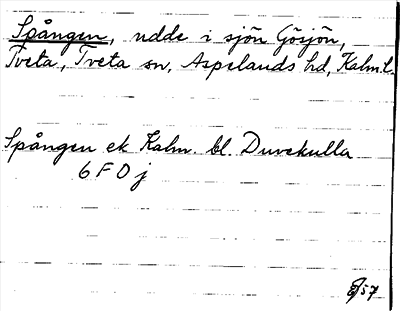 Spången, udde i sjön Gösjön,
Tveta, Tveta sn, Aspelands hd, Kalm. l.
Spången ek Kalm. bl. Duvekulla
6 F 0 j
/57